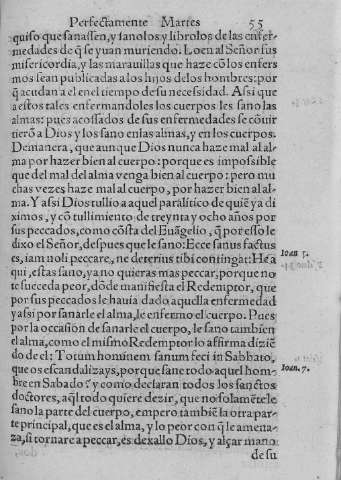 Perfectamente Martes 55
quiso que sanassen, y sanolos y librolos de las enfer-
medades de q̃ se yuan muriendo. Loen al Señor sus
misericordia, y las marauillas que haze cõ los enfer
mos sean publicadas a los hijos de los hombres: por
q̃ acudan a el en el tiempo de su necessidad. Assi que
a estos tales enfermandoles los cuerpos les sano las
almas: pues acossados de sus enfermedades se cõuir
tierõ a Dios y los sano en las almas, y en los cuerpos.
Demanera, que aunque Dios nunca haze mal al al
ma por hazer bien al cuerpo: porque es impossible
que del mal del alma venga bien al cuerpo: pero mu
chas vezes haze mal al cuerpo, por hazer bien al al-
ma. Y assi Dios tullio a aquel paralitico de quiẽ ya di
ximos, y cõ tullimiento de treynta y ocho años por
sus peccados, como cõsta del Euãgelio, q̃ por esso le
dixo el Señor, despues que le sano: Ecce sanus factus
es, iam noli peccare, ne deterius tibi contingat: He a
Ioan 5.
qui, estas sano, ya no quieras mas peccar, porque no
te succeda peor, dõde manifiesta el Redemptor, que
por sus peccados le hauia dado aquella enfermedad
y assi por sanarle el alma, le enfermo el cuerpo. Pues
por la occasiõn de sanarle el cuerpo, le sano tambien
el alma, como el mismo Redemptor lo affirma diziẽ
do de el: Totum hominem sanum feci in Sabbato,
que os escandalizays, porque sane todo aquel hom-
Ioan. 7.
bre en Sabado? y como declaran todos los sanctos
doctores, aq̃l todo quiere dezir, que no solamẽte le
sano la parte del cuerpo, empero tambiẽ la otra par-
te principal, que es el alma, y lo peor con q̃ le amena-
za, si tornare a peccar, es dexallo Dios, y alçar mano
de su